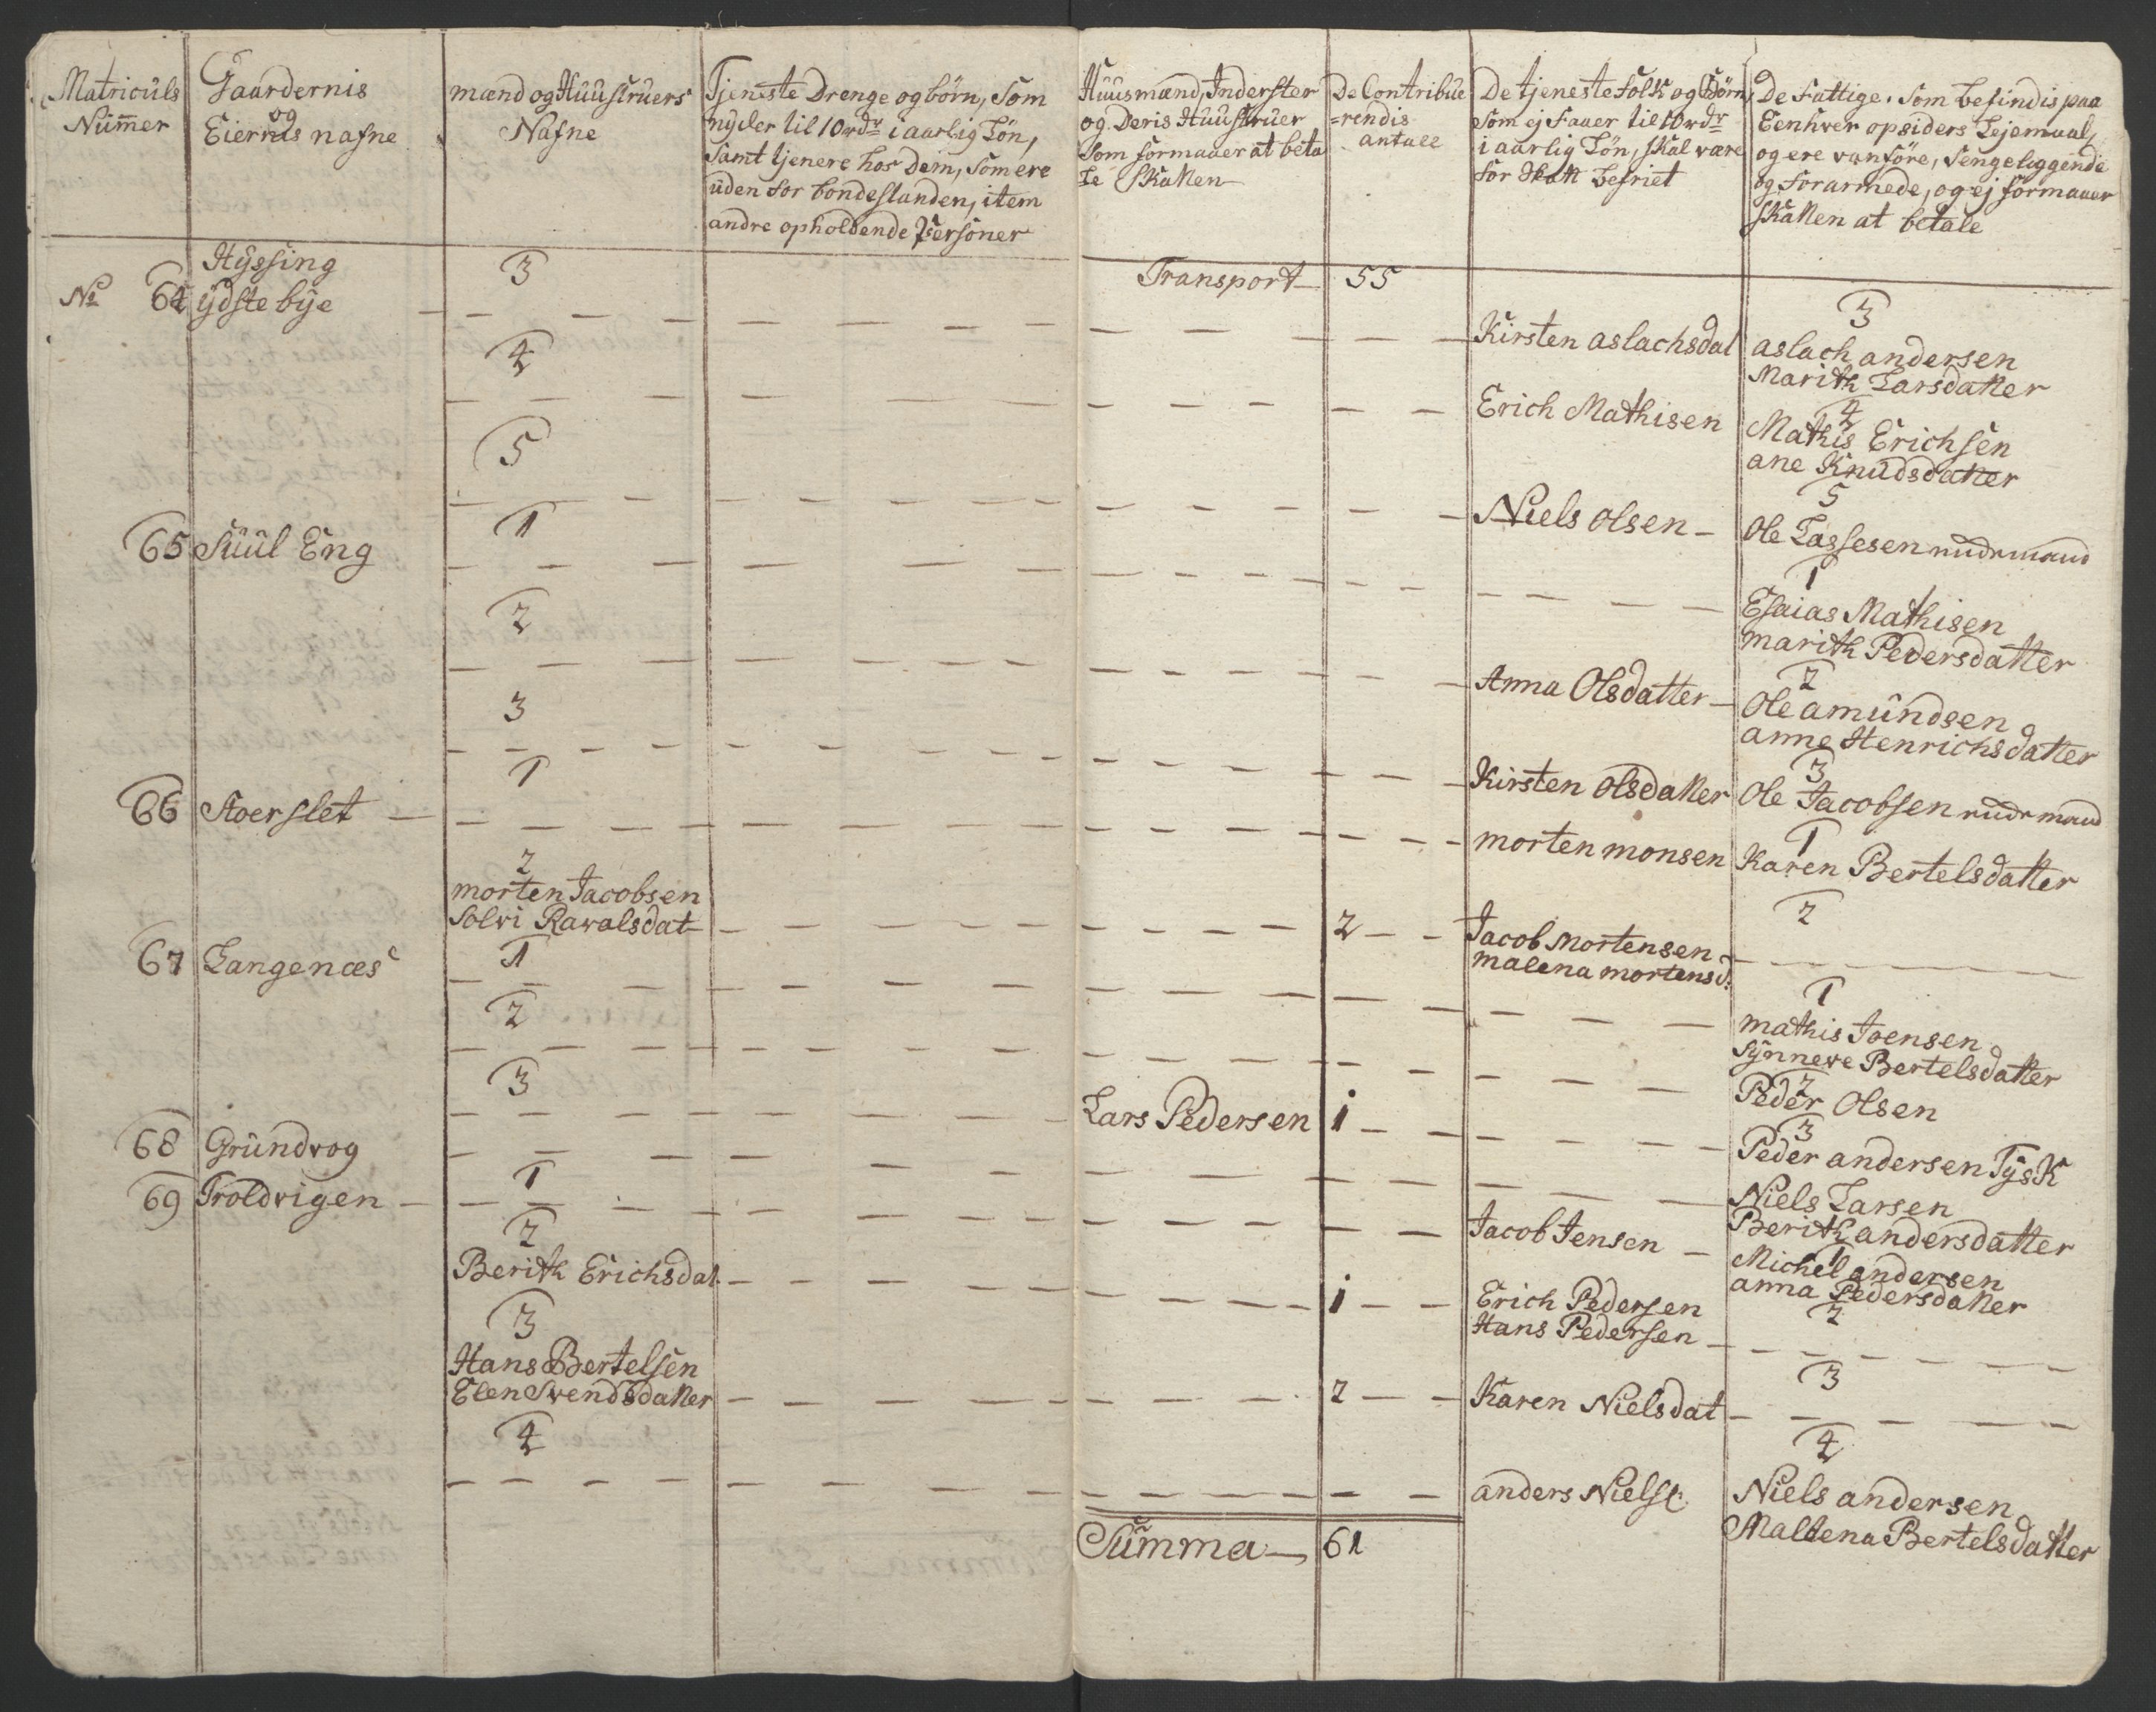 Matriculs
Nummer
Gaardernis
og
Eiernis nafne
mænd og Huustruers
Nafne
Tjeniste Drenge og börn, som
nyder til 10 rdr i aarlig Lön,
samt tjenere hos dem, som ere
uden for bondestanden, item
andre opholdende Personer
Huusmænd, Inderster
og Deris Huustruer
som formaaer at beta
le Skatten
De Contribue
=rendis
antall
De tjeneste folk og Börn,
som ej faaer til 10 rdr
i aarlig Lön, skal være
for skatt befriet
De Fattige, som befindis paa
Eenhver opsiders Lejemaal,
og ere vanföre, sengeliggende
og forarmede, og ej formaaer
skatten at betale
Hyssing
No 64 ydste bye
3
Transport 55
3
Kirsten aslachsdat
aslach andersen
Marith Larsdatter
4
4
Erich Mathisen
Mathis Erichsen
ane Knudsdatter
5
5
Niels olsen
Ole Lassesen
65 Suul Eng
1
1
Esaias Mathisen
marith Pedersdatter
2
2
Anna Olsdatter
Ole amundsen
anne Henrichsdatter
3
3
Kirsten olsdatter
Ole Jacobsen
66 Stoerslet
1
1
morten monsen
Karen Bertelsdatter
2
morten Jacobsen
Solvi Ravalsdat
2
2
Jacob Mortensen
malena mortensd:
67 Langenæs
1
1
mathis Joensen
Synneve Bertelsdatter
2
2
Peder Olsen
3
Lars Pedersen
1
3
Peder andersen Tysk
68 Grundvog
Niels Larsen
Berith andersdatter
69 Troldvigen
1
1
Jacob Jensen
Michel andersen
anna Pedersdatter
2
Berith Erichsdat
1
Erich Pedersen
Hans Pedersen
2
3
Hans Bertelsen
Elen Svendsdatter
2
Karen Nielsdat
3
4
4
anders Niels:
Niels andersen
Mallena Bertelsdatter
Summa 61